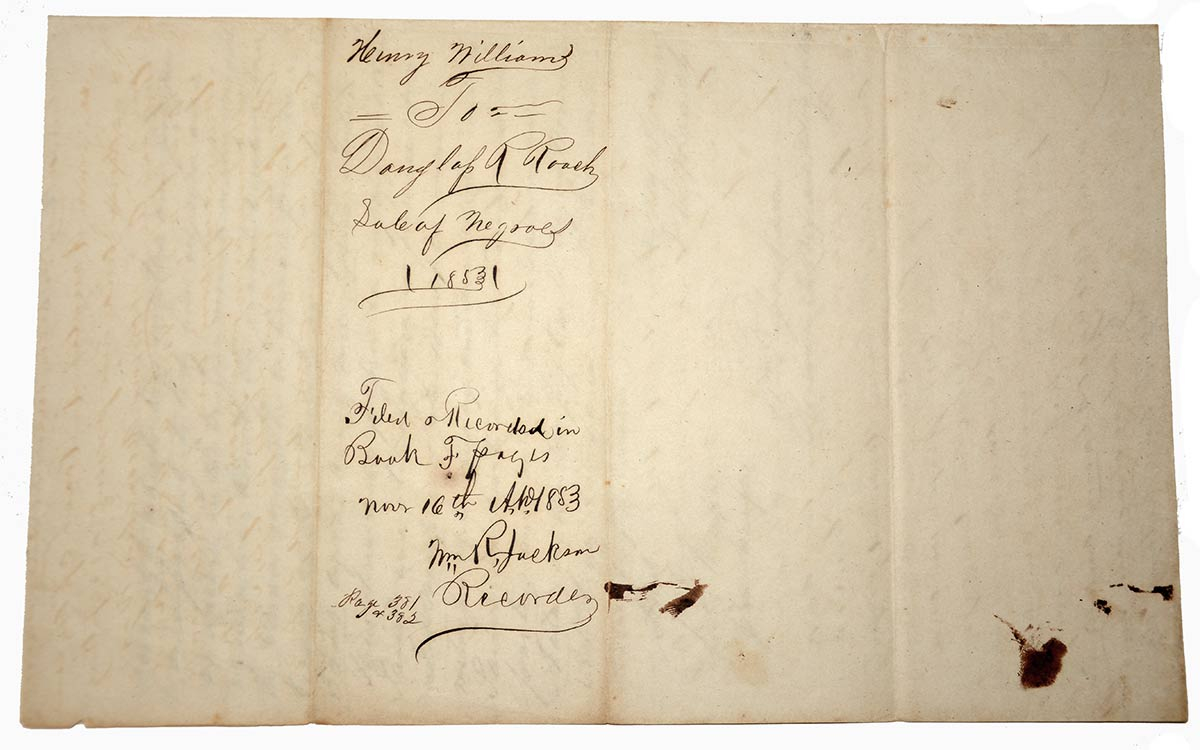 Henry Williams
= To =
Douglass R Roach
Sale of Negroes
1853
Filed & Recorded in
Book F pages
Novr 16th A.D. 1853
Wm R, Jackson
Recorder
Page 381
& 382